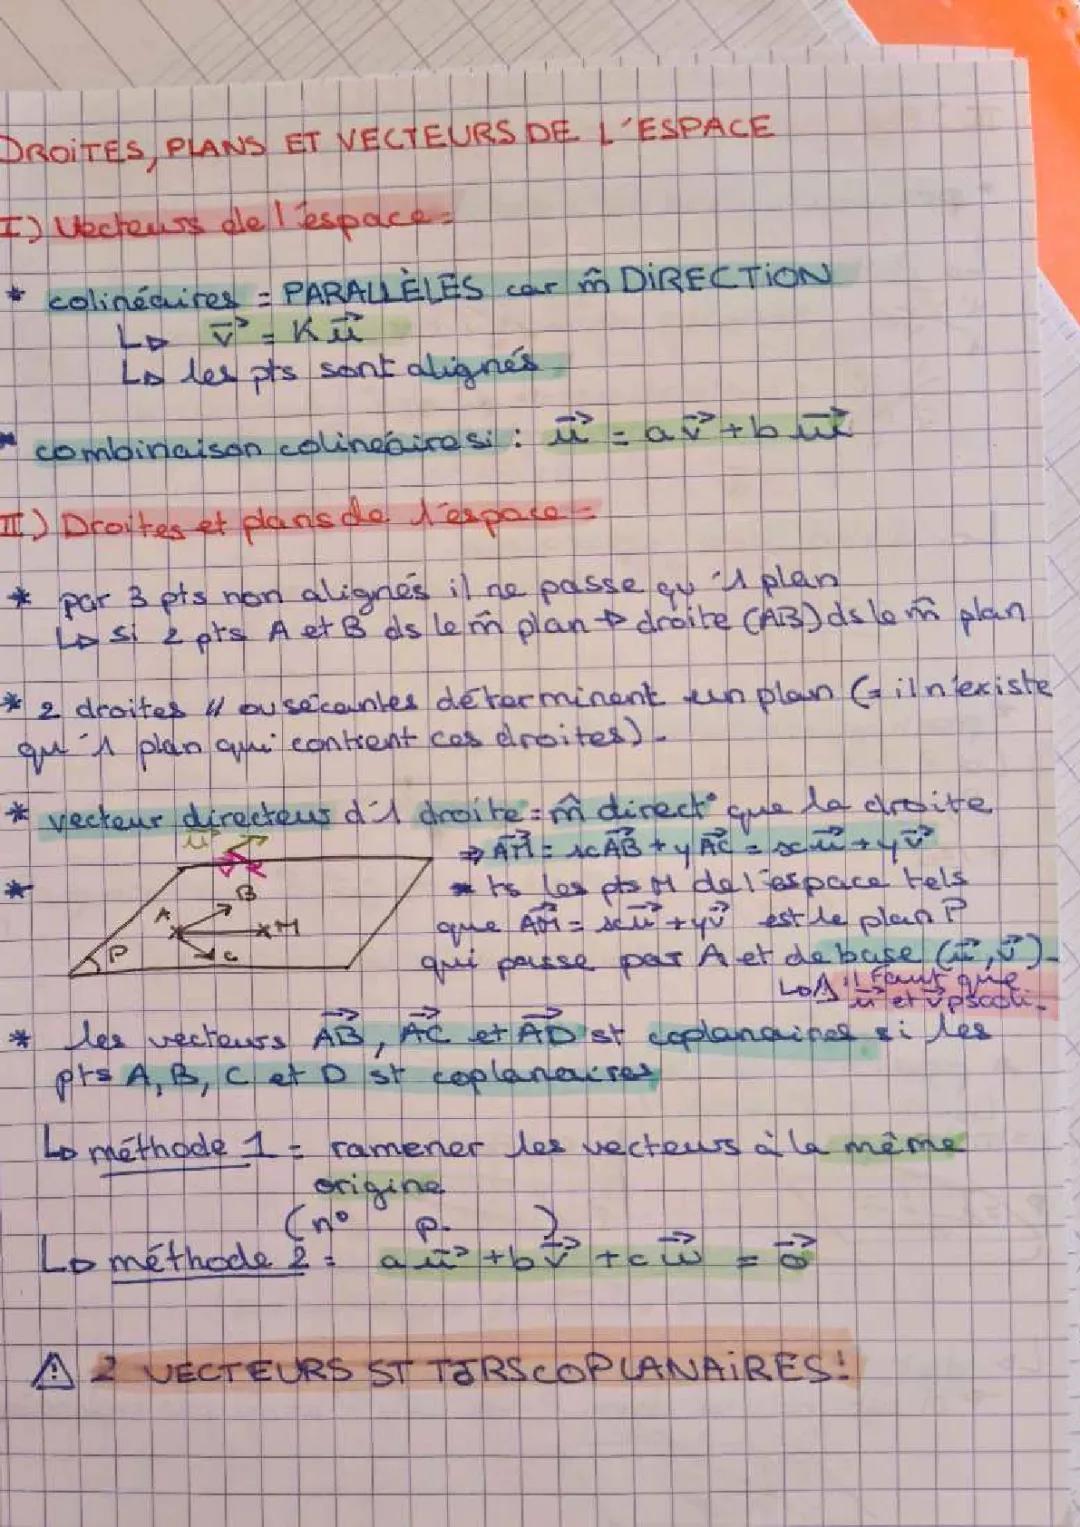 DROITES, PLANS ET VECTEURS DE L'ESPACE
I) Vecteurs de l'espace =
* colinéaires = PARALLÈLES car m̂ DIRECTION
↳ v⃗ = K u⃗
↳ les pts sont alignés
combinaison colinéaire si : u⃗ = a v⃗ + b w⃗
II) Droites et plans de l'espace =
* par 3 pts non alignés il ne passe qu'1 plan
↳ si 2 pts A et B ds le m̂ plan → droite (AB) ds le m̂ plan
* 2 droites // ou sécantes déterminent un plan (= il n'existe
qu'1 plan qui contient ces droites).
* vecteur directeur d'1 droite = m̂ direct° que la droite
u⃗
⇒ AM⃗ = xAB⃗ + yAC⃗ = xu⃗ + yv⃗
* ts les pts M de l'espace tels
B
A
M
que AM⃗ = xu⃗ + yv⃗ est le plan P
P
C
qui passe par A et de base (u⃗, v⃗)
↳ ⚠ il faut que
u⃗ et v⃗ ps coli.
* les vecteurs AB⃗, AC⃗ et AD⃗ st coplanaires si les
pts A, B, C et D st coplanaires
↳ méthode 1 = ramener les vecteurs à la même
origine
(n° p. )
↳ méthode 2 = a u⃗ + b v⃗ + c w⃗ = 0⃗
⚠ 2 VECTEURS ST TJRS COPLANAIRES!